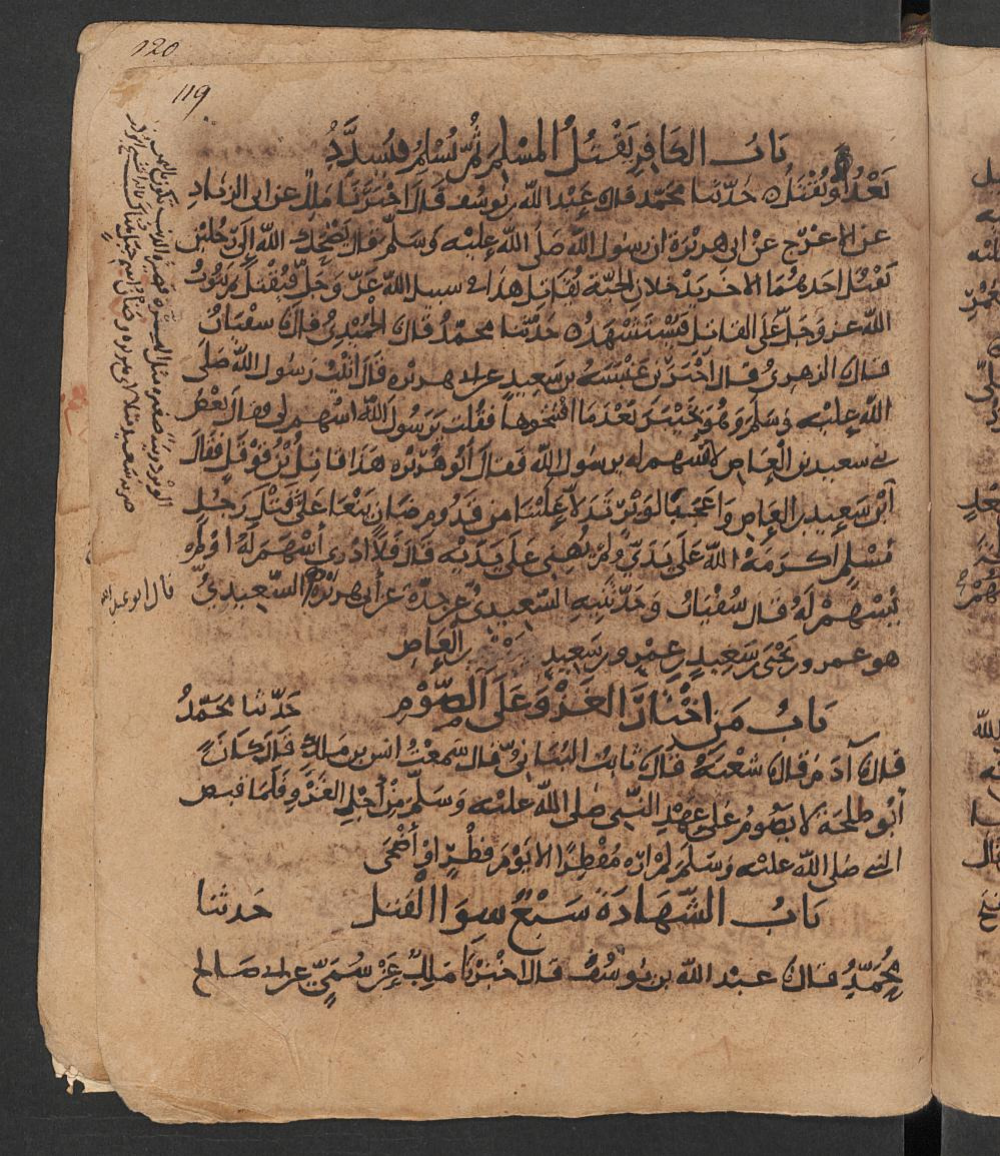 120
119
باب الكافر يقتل المسلم ثم يسلم فيسدد
بعد أو يقتل حدثنا محمد قال عبد الله بن يوسف قال اخبرنا ملك عن ابى الزناد
عن الاعرج عن ابى هريرة ان رسول الله صلى الله عليه وسلم قال يضحك الله الى رجلين
يقتل احدهما الاخر يدخلان الجنة يقاتل هذا فى سبيل الله عز وجل فيقتل ثم يتوب
الله عز وجل على القاتل فيستشهد حدثنا محمد قال الحميدى قال سفيان
قال الزهرى قال اخبرنى عنبسة بن سعيد عن ابى هريرة قال اتيت رسول الله صلى
الله عليه وسلم وهو بخيبر بعدما افتتحوها فقلت يرسول الله اسهم لى فقال بعض
بنى سعيد بن العاص لا تسهم له يرسول الله فقال أبو هريرة هذا قاتل ابن قوقل فقال
ابن سعيد بن العاص واعجبا لوبر تدلا علينا من قدوم ضان ينعا على قتل رجل
مسلم اكرمه الله على يدى ولم يهنى على يديه قال فلا ادرى أسهم له او لم
يسهم له قال سفيان وحدثنيه السعيدى عن جده عن أبى هريرة السعيدى
قال ابو عبد الله
هو عمرو بن يحيى بن سعيد بن عمرو بن سعيد بن العاص
باب من اختار الغزو على الصوم حدثنا محمد
قال آدم قال شعبة قال ثابت البنانى قال سمعت انس بن ملك قال كان
أبو طلحة لا يصوم على عهد النبى صلى الله عليه وسلم من أجل الغزو فلما قبض
النبى صلى الله عليه وسلم لم اره مفطرا الا يوم فطر او أضحى
باب الشهادة سبع سوا القتل حدثنا
محمد قال عبد الله بن يوسف قال اخبرنا ملك عن سمى عن ابى صالح